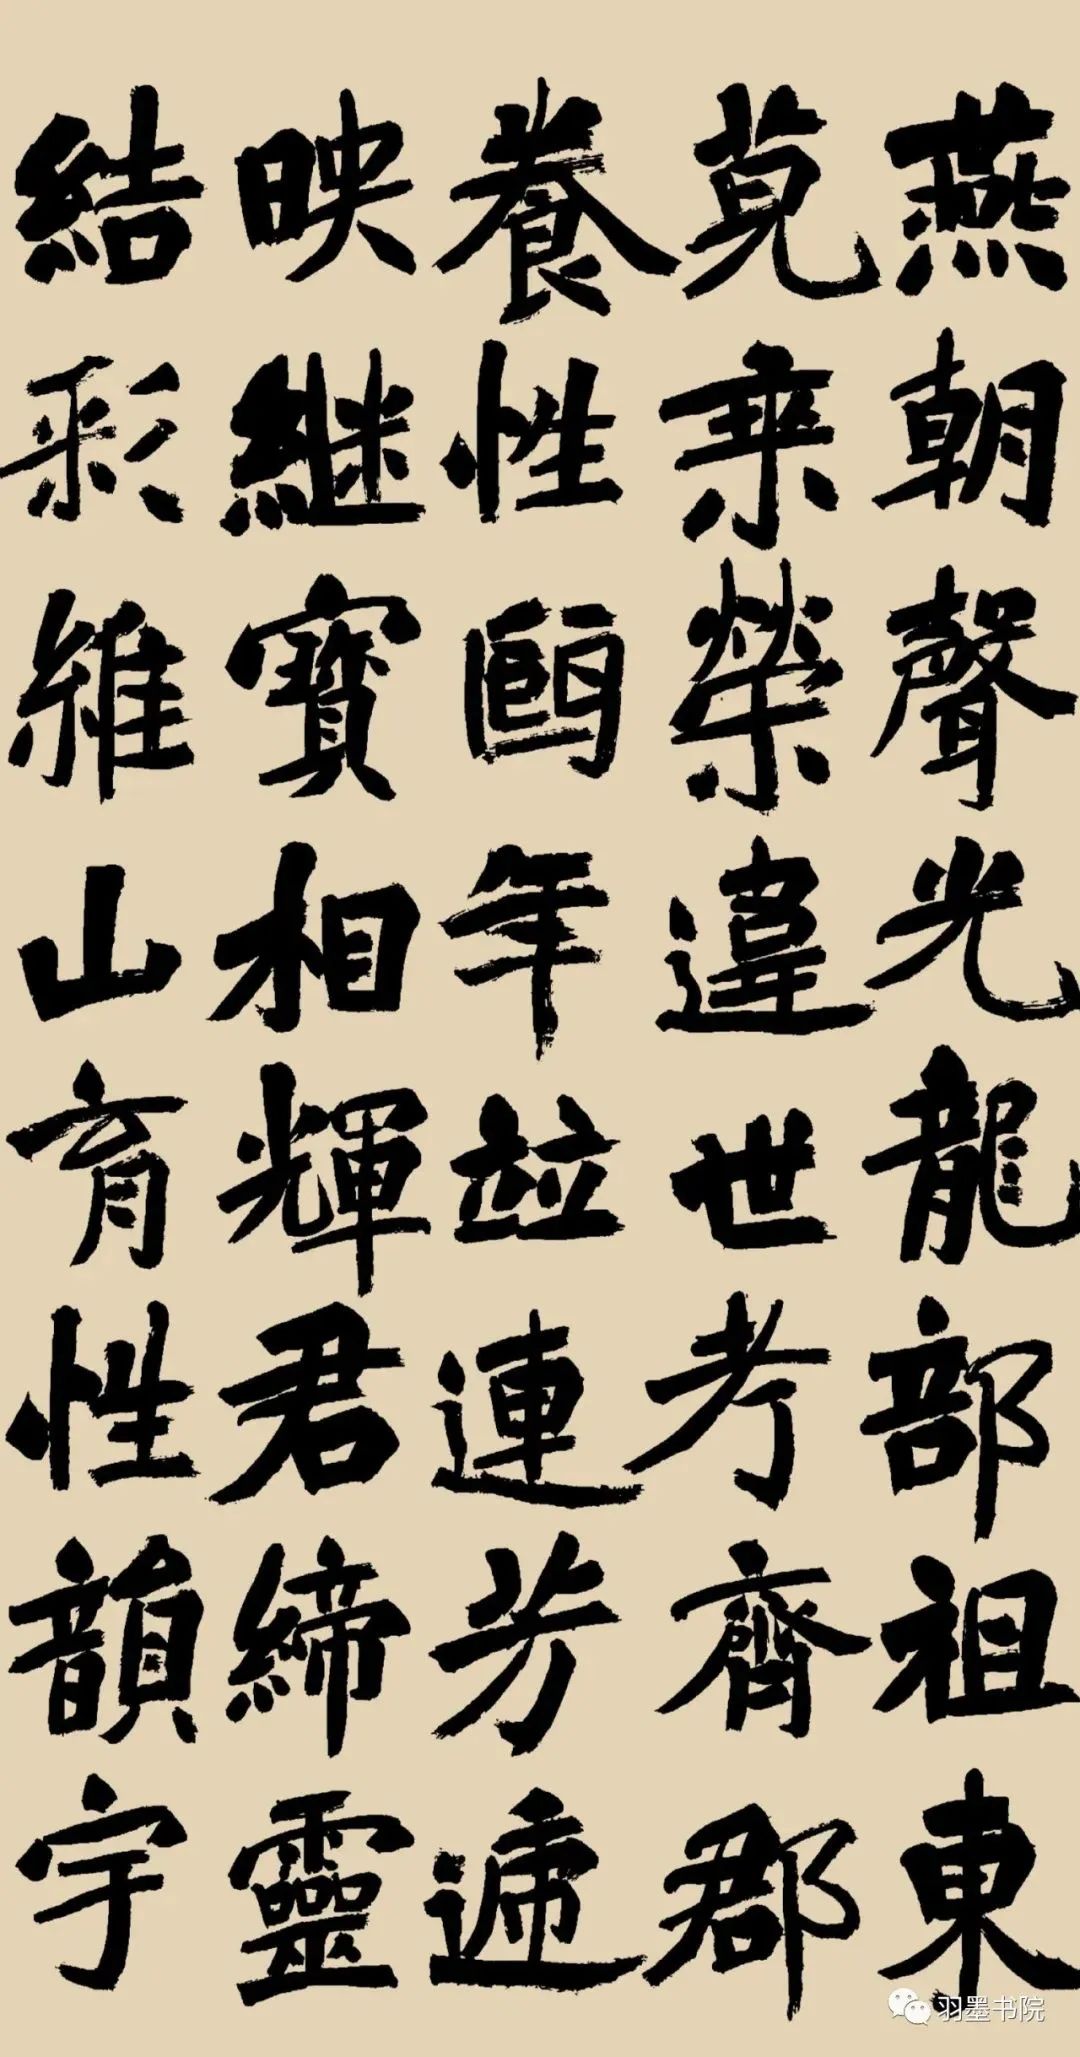 燕朝聲光龍部祖東
乘榮違世考齊郡
養性頤年並連芳遞
映繼寶相輝君締靈
結彩維山育性韻宇
羽墨书院